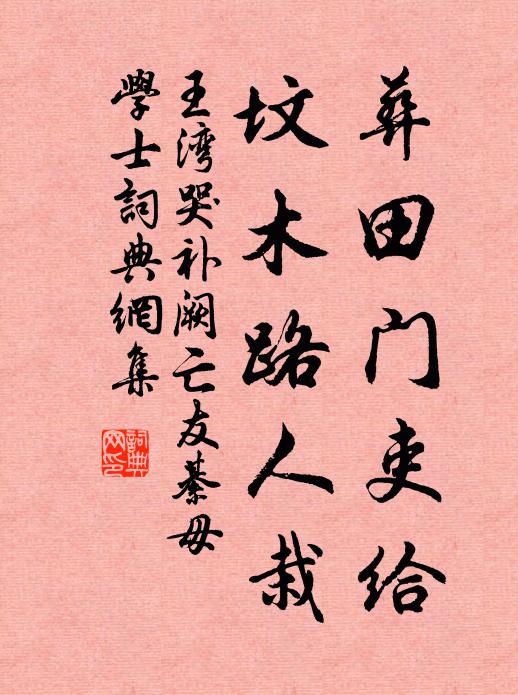 葬田门吏给
坟木路人栽
王湾哭补阙亡友綦毋
學士詞典網集
詞典
网印